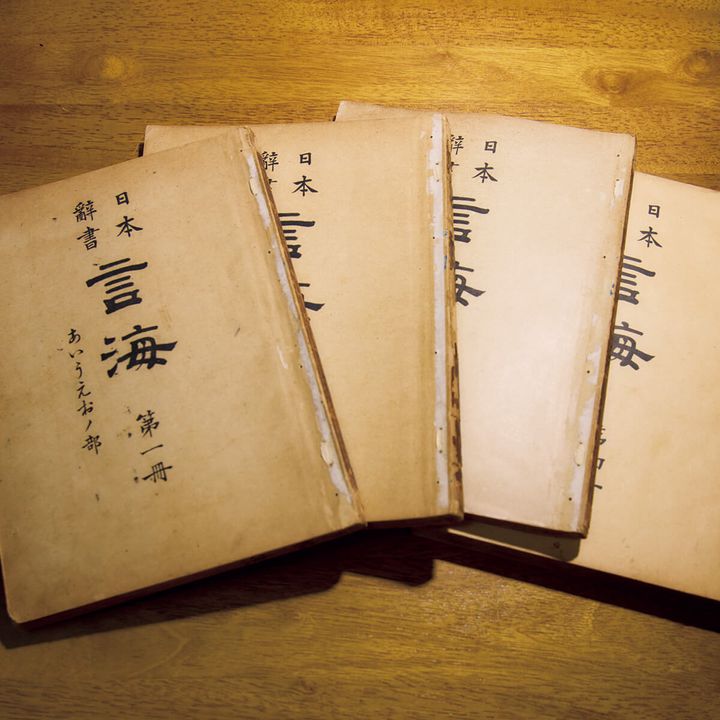 日本
辭書
言海
第一冊
あいうえおノ部
日本
辭
言
日本
辭書
言海
日本
言海